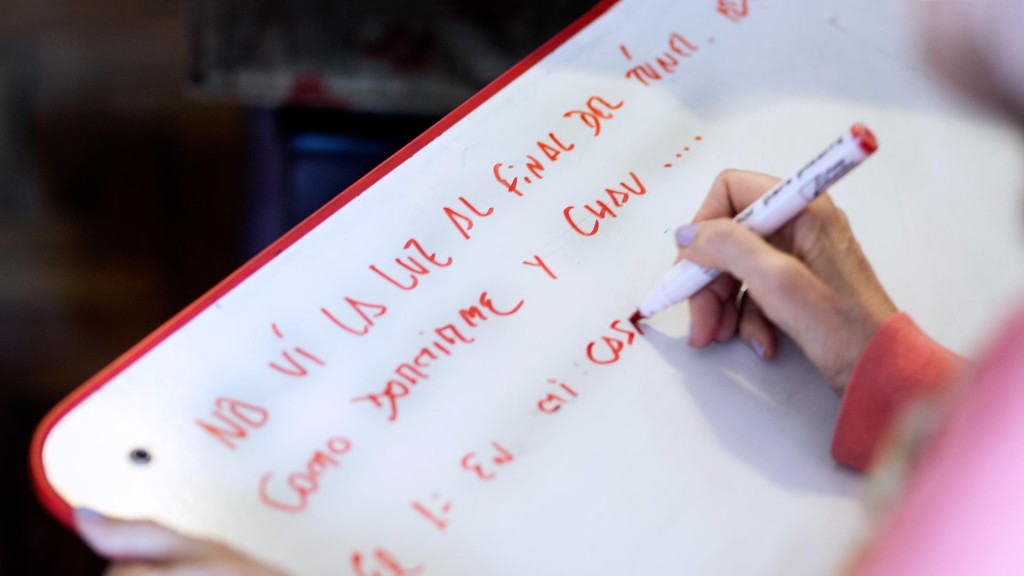 NO VÍ LA LUZ AL FINAL DEL TÚNEL.
COMO DORMIRME Y CHAU ....
1: EN MI CASA
El